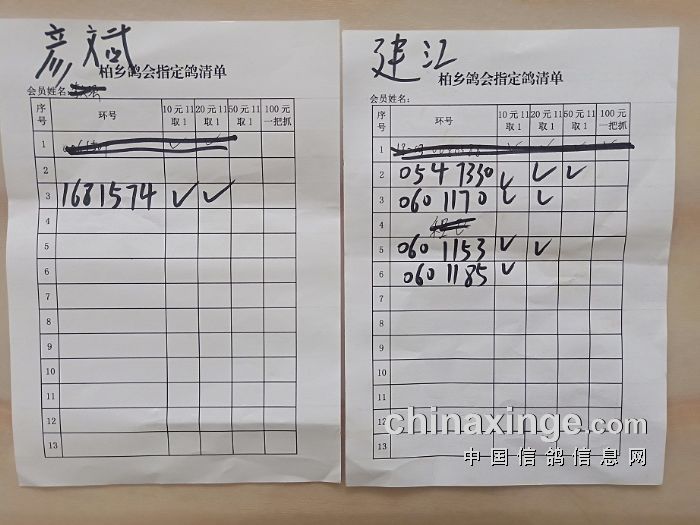 彦斌
柏乡鸽会指定鸽清单
会员姓名:
序号 环号 10元11取1 20元11取1 50元11取1 100元一把抓
1
2
3 1681574 ✓ ✓
4
5
6
7
8
9
10
11
12
13
建江
柏乡鸽会指定鸽清单
会员姓名:
序号 环号 10元11取1 20元11取1 50元11取1 100元一把抓
1
2 0547330 ✓ ✓ ✓
3 0601170 ✓ ✓
4
5 0601153 ✓ ✓
6 0601185 ✓
7
8
9
10
11
12
13
chinaxinge.com
中国信鸽信息网